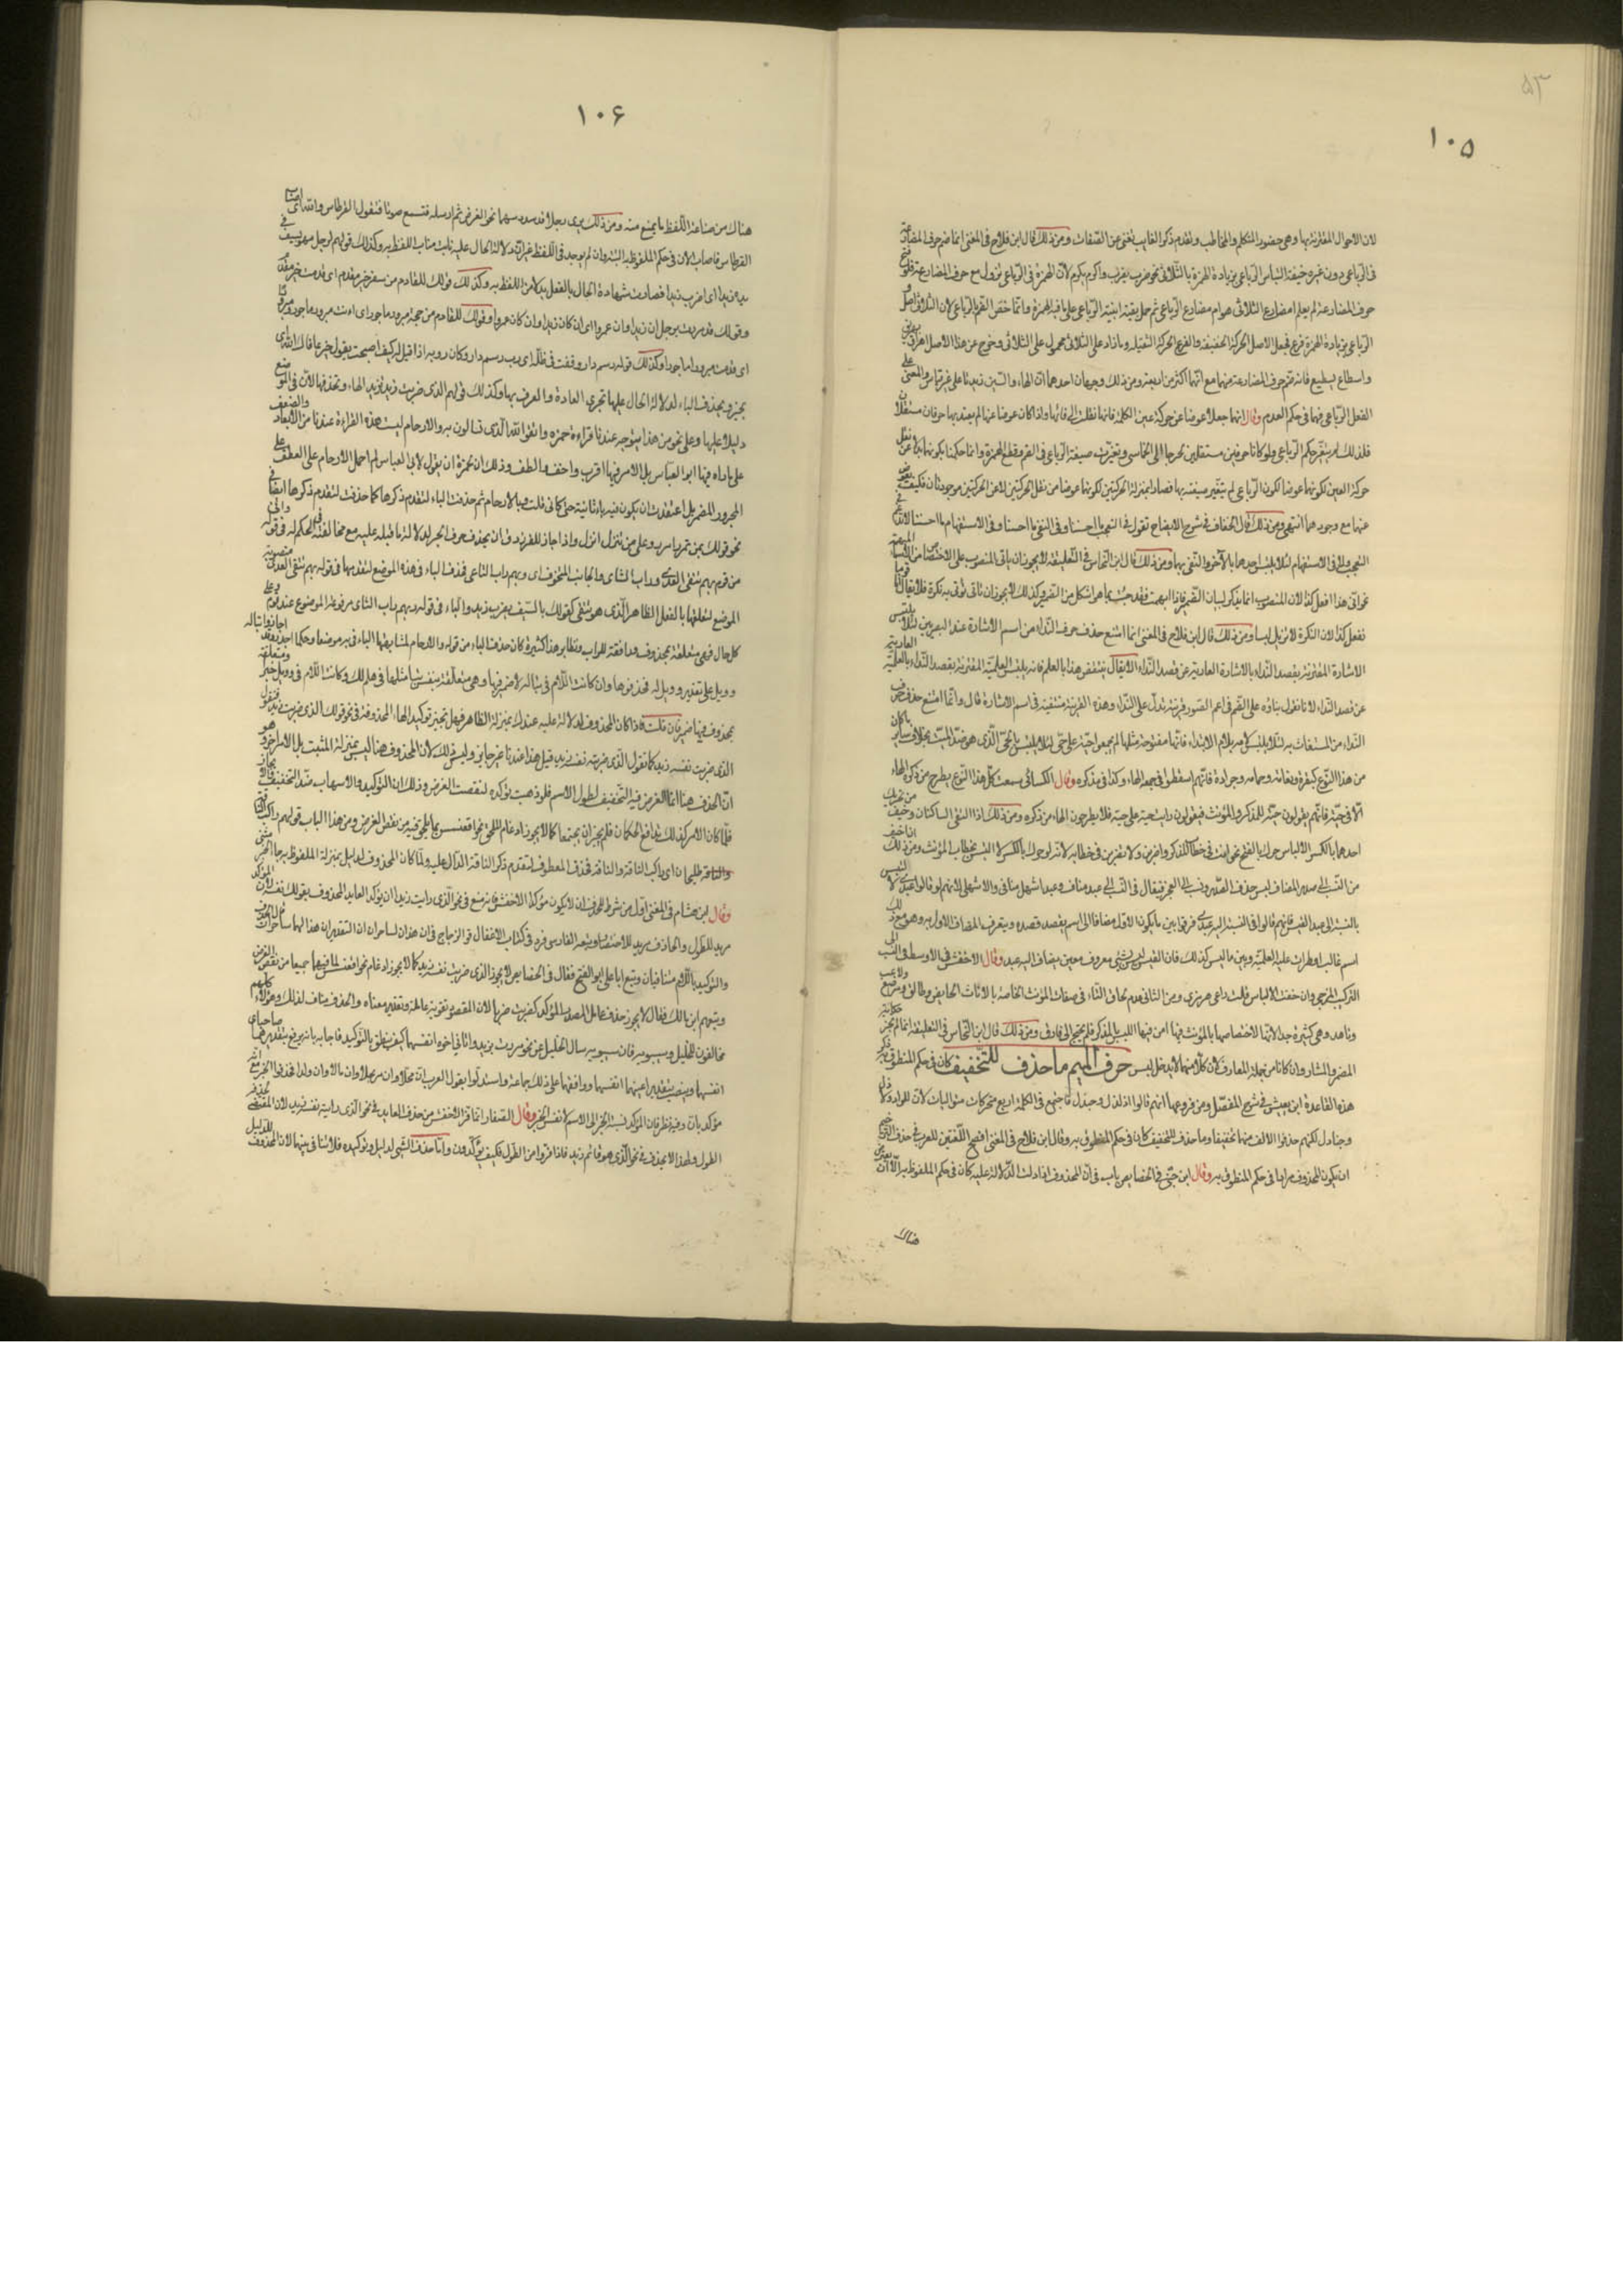 ۵۳
۱۰۵
لان الاحوال المقترنة بها وهى حضور المتكلم والمخاطب وتقدم ذكر الغايب تغنى عن الصفات ومن ذلك قال ابن فلاح فى المغنى انما ضم حرف المضارعة
فى الرباعى دون غيره خيفة التباس الرباعى بزيادة الهمزة بالثلاثى نحو ضرب يضرب واكرم يكرم لان الهمزة فى الرباعى تزول مع حرف المضارعة فلو فتح
حرف المضارعة لم يعلم امضارع الثلاثى هو ام مضارع الرباعى ثم حمل بقية ابنية الرباعى على ما فيه الهمزة وانما خص الضم بالرباعى لان الثلاثى اصل
الرباعى بزيادة الهمزة فرع فجعل الاصل الحركة الخفيفة والفرع الحركة الثقيلة وما زاد على الثلاثى محمول على الثلاثى وخرج عن هذا الاصل اهراق يهريق
واسطاع يسطيع فانه ضم حرف المضارعة منهما مع انهما اكثر من اربعة ومن ذلك وجهان احدهما ان الهاء والسين زيدتا على غير قياس والمعنى على
الفعل الرباعى فهما فى حكم العدم وقال انهما جعلا عوضا عن حركة عين الكلمة فانها نقلت الى فائها واذا كانا عوضا عنها لم يعتد بهما حرفان مستقلان
فلذلك لم يتغير حكم الرباعى ولو كانا حرفين مستقلين لخرجا الى الخماسى وتغيرت صيغة الرباعى فى الضم وقطع الهمزة وانما حكمنا بكونهما بدلا عن نقل
حركة العين لكونهما عوضا لكون الرباعى لم يتغير صيغته بهما فصارا بمنزلة الحركتين لكونهما عوضا من نقل الحركتين لا عن الحركتين موجودتان فكيف يعوض
عنها مع وجودهما انتهى ومن ذلك قال الخفاف فى شرح الايضاح تقول فى التعجب ما احسننا وفى النفى ما احسنا وفى الاستفهام ما احسننا لا تدغم فى
التعجب ولا فى الاستفهام لئلا يلتبس احدهما بالآخر والنفى بهما ومن ذلك قال ابن النحاس فى التعليقة لا يجوز ان ياتى المنصوب على الاختصاص من الاسماء المبهمة
نحو انى هذا افعل كذا لان المنصوب انما يذكر لبيان الضمير فاذا ابهمت فقد جئت بما هو اشكل من الضمير وكذلك لا يجوز ان تاتى به نكرة فلا يقال انا قوما
نفعل كذا لان النكرة لا تزيل لبسا ومن ذلك قال ابن فلاح فى المغنى انما امتنع حذف حرف النداء من اسم الاشارة عند البصريين لئلا يلتبس
الاشارة المقترنة بقصد النداء بالاشارة العارية عن قصد النداء لا يقال ينتقض هذا بالعلم فانه يلتبس العلمية المقترنة بقصد النداء بالعلمية العارية
عن قصد النداء لانا نقول بناؤه على الضم فى اعم الصور قرينة تدل على النداء وهذه القرينة منتفية فى اسم الاشارة قال وانما امتنع حذف حرف
النداء من المستغاث به لئلا يلتبس لامه بلام الابتداء فانها مفتوحة مثلها
من هذا النوع كبقرة وبقاته وحمامة وجرادة فانهم اسقطوا فى جمعه الهاء وكذا فى مذكره وقال الكسائى سمعت كل هذا النوع يطرح من ذكره الهاء
الا فى حية فانهم يقولون حية للمذكر والمؤنث فيقولون رايت حية على حية فلا يطرحون الهاء من ذكره ومن ذلك اذا التقى الساكنان وخيف من تحريك
احدهما بالكسر الالباس حرك بالفتح نحو انت فى خطاب المذكر واضربن ولا تضربن فى خطابه لانه لو حرك بالكسر لالتبس بخطاب المؤنث ومن ذلك
من النسب الى صدر المضاف لبس حذف الصدر ونسب الى العجز فيقال فى النسب الى عبد مناف وعبد اشهل منافى واشهلى لانهم لو قالوا عبدى لالتبس
بالنسبة الى عبد القيس فانهم قالوا فى النسبة اليه عبدى
اسم غالب او طرات عليه العلمية وبين ما ليس كذلك وقال الاخفش فى الاوسط فى النسب الى
التركيب المزجى وان خفت الالباس قلت رامى هرمزى ومن الثانى عدم لحاق التاء فى صفات المؤنث الخاصة بالاناث كحايض وطالق ومرضع
وناهد وهى كثيرة جدا لانها لاختصاصها بالمؤنث فيها امن فيها اللبس بالمذكر فلم يحتج الى فارق ومن ذلك قال ابن النحاس فى التعليقة انما لم يجز
المضمر والمشار وان كانا من جملة المعارف لان كلا منهما لا يدخله لبس حرف الميم ما حذف للتخفيف كان فى حكم المنطوق به
هذه القاعدة ابن يعيش فى شرح المفصل ومن فروعها انهم قالوا ذلذل وجندل فاجتمع فى الكلمة اربع متحركات متواليات لان المراد ذلاذل
وجنادل لكنهم حذفوا الالف منهما تخفيفا وما حذف للتخفيف كان فى حكم المنطوق به وقال ابن فلاح فى المغنى افصح اللغتين للعرب فى حذف الترخيم
ان يكون المحذوف مرادا فى حكم المنطوق به وقال ابن جنى فى الخصايص باب فى ان المحذوف اذا دلت الدلالة عليه كان فى حكم الملفوظ به الا ان يعترض
هناك
۱۰۶
هناك من صناعة اللفظ ما يمنع منه ومن ذلك يرى رجلا قد سدد سهما نحو الغرض ثم ارسله فتسمع صوتا فتقول القرطاس والله اى اصاب
القرطاس فاصاب الان فى حكم الملفوظ به البتة وان لم يوجد فى اللفظ غير ان دلالة الحال عليه نابت مناب اللفظ به وكذلك قولهم لرجل مهو بسيف فى
يده زيدا اى اضرب زيدا فصارت شهادة الحال بالفعل بدلا من اللفظ به وكذلك قولك للقادم من سفر خير مقدم اى قدمت خير مقدم
وقولك قد مررت برجل ان زيدا وان عمروا اى ان كان زيدا وان كان عمروا وقولك للقادم من حجه مبرور ماجور اى انت مبرور ماجور ومبرورا
اى قدمت مبرورا ماجورا وكذلك قوله رسم دار وقفت فى طلله اى رب رسم دار وكان رؤبة اذا قيل له كيف اصبحت يقول خير عافاك الله اى
بخير ويحذف الباء لدلالة الحال عليها بجرى العادة والعرف بها وكذلك قولهم الذى ضربت زيد تريد الهاء وتحذفها لان فى الموضع
دليلا عليها وعلى نحو من هذا يتوجه عندنا قراءة حمزة واتقوا الله الذى تسالون به والارحام ليست هذه القراءة عندنا من الابعاد والضعف
على ما راه فيها ابو العباس بل الامر فيها اقرب واخف والطف وذلك ان لحمزة ان يقول لابى العباس لم احمل الارحام على العطف على
المجرور المضمر بل اعتقدت ان يكون فيه باء ثانية حتى كانى قلت وبالارحام ثم حذفت الباء لتقدم ذكرها كما حذفت لتقدم ذكرها ايضا فى
نحو قولك بمن تمرر امرر وعلى من تنزل انزل واذا جاز للفرزدق ان يحذف حرف الجر لدلالة ما قبله عليه مع مخالفته فى الحكم له فى قوله وانى
من قوم بهم يتقى العدى وراب الثاى والجانب المتخوف اى وبهم راب الثاى فحذف الباء فى هذا الموضع لتقدمها فى قوله بهم يتقى العدى
الموضع لتعلقها بالفعل الظاهر الذى هو يتقى كقولك بالسيف يضرب زيد والباء فى قوله وبهم راب الثاى مرفوعة الموضوع عند قوم وعلى
كل حال فهى متعلقة بمحذوف ورافعته الراب ونظاير هذا كثيرة كان حذف الباء من قوله والارحام لمشابهتها الباء فى به موضعا وحكما اجدر وقد اجازوا تباله
وويل على تقدير وويل له فحذفوها وان كانت اللام فى تباله لا ضمير فيها وهى متعلقة بنفس تبا مثلها فى هلم لك وكانت اللام فى وويل خبرا ومتعلقة
بمحذوف فيها ضمير فان قلت فاذا كان المحذوف للدلالة عليه عندك بمنزلة الظاهر فهل تجيز توكيد الهاء المحذوفة فى نحو قولك الذى ضربت زيد فتقول
الذى ضربت نفسه زيد كما تقول الذى ضربته نفسه زيد قيل هذا عندنا غير جايز وليس ذلك لان المحذوف هنا ليس بمنزلة المثبت بل لامر اخر وهو
ان الحذف هنا انما الغرض فيه التخفيف لطول الاسم فلو ذهبت تؤكده لنقضت الغرض وذلك ان التوكيد والاسهاب ضد التخفيف والايجاز
فلما كان الامر كذلك تدافع الحكمان فلم يجز ان يجتمعا كما لا يجوز ادغام الملحق نحو اقعنسس لما يلحق فيه من نقض الغرض ومن هذا الباب قولهم راكب الناقة
والناقة طليحان اى راكب الناقة والناقة فحذف المعطوف لتقدم ذكر الناقة الدال عليه ولما كان المحذوف لدليل بمنزلة الملفوظ به جاء الخبر مثنى
وقال ابن هشام فى المغنى اول من شرط للحذف ان لا يكون مؤكدا الاخفش فانه منع فى نحو الذى رايت زيد ان يؤكد العايد المحذوف بقولك نفسه لان المؤكد
مريد للطول والحاذف مريد للاختصار وتبعه الفارسى فرد فى كتاب الاغفال قول الزجاج فى ان هذان لساحران ان التقدير ان هذان لهما ساحران
والتوكيد باللام متنافيان وتبع ابا على ابو الفتح فقال فى الخصايص لا يجوز الذى ضربت نفسه زيد كما لا يجوز ادغام نحو اقعنسس لما فيهما جميعا من نقض الغرض
وتبعهم ابن مالك فقال لا يجوز حذف عامل المصدر المؤكد كضربت ضربا لان المقصود تقوية عامله وتقدير معناه والحذف مناف لذلك وهؤلاء كلهم
مخالفون للخليل وسيبويه فان سيبويه سال الخليل عن نحو مررت بزيد واتانى اخوه انفسهما كيف ينطق بالتوكيد فاجابه بانه يرفع بتقدير هما صاحباى
انفسهما وينصب بتقدير اعنيهما انفسهما ووافقهما على ذلك جماعة واستدلوا بقول العرب ان محلا وان مرتحلا وان مالا وان ولدا فحذفوا الخبر مع انه
مؤكد بان وفيه نظر فان المؤكد نسبة الخبر الى الاسم لا نفس الخبر وقال الصفار انما فر الاخفش من حذف العايد فى نحو الذى رايته نفسه زيد لان المقتضى للحذف
الطول ولهذا لا يحذف فى نحو الذى هو قائم زيد فاذا فروا من الطول فكيف يؤكدون واما حذف الشىء لدليل وتوكيده فلا تنافى بينهما لان المحذوف للدليل